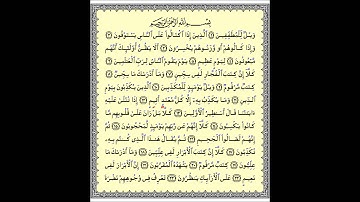 بِسْمِ اللَّهِ الرَّحْمَٰنِ الرَّحِيمِ
وَيْلٌ لِّلْمُطَفِّفِينَ ١ الَّذِينَ إِذَا اكْتَالُوا عَلَى النَّاسِ يَسْتَوْفُونَ ٢
وَإِذَا كَالُوهُمْ أَو وَّزَنُوهُمْ يُخْسِرُونَ ٣ أَلَا يَظُنُّ أُولَٰئِكَ أَنَّهُم
مَّبْعُوثُونَ ٤ لِيَوْمٍ عَظِيمٍ ٥ يَوْمَ يَقُومُ النَّاسُ لِرَبِّ الْعَالَمِينَ ٦
كَلَّا إِنَّ كِتَابَ الْفُجَّارِ لَفِي سِجِّينٍ ٧ وَمَا أَدْرَاكَ مَا سِجِّينٌ ٨
كِتَابٌ مَّرْقُومٌ ٩ وَيْلٌ يَوْمَئِذٍ لِّلْمُكَذِّبِينَ ١٠ الَّذِينَ يُكَذِّبُونَ بِيَوْمِ
الدِّينِ ١١ وَمَا يُكَذِّبُ بِهِ إِلَّا كُلُّ مُعْتَدٍ أَثِيمٍ ١٢ إِذَا تُتْلَىٰ عَلَيْهِ
آيَاتُنَا قَالَ أَسَاطِيرُ الْأَوَّلِينَ ١٣ كَلَّا بَلْ رَانَ عَلَىٰ قُلُوبِهِم مَّا
كَانُوا يَكْسِبُونَ ١٤ كَلَّا إِنَّهُمْ عَن رَّبِّهِمْ يَوْمَئِذٍ لَّمَحْجُوبُونَ ١٥ ثُمَّ
إِنَّهُمْ لَصَالُو الْجَحِيمِ ١٦ ثُمَّ يُقَالُ هَٰذَا الَّذِي كُنتُم بِهِ
تُكَذِّبُونَ ١٧ كَلَّا إِنَّ كِتَابَ الْأَبْرَارِ لَفِي عِلِّيِّينَ ١٨ وَمَا أَدْرَاكَ مَا
عِلِّيُّونَ ١٩ كِتَابٌ مَّرْقُومٌ ٢٠ يَشْهَدُهُ الْمُقَرَّبُونَ ٢١ إِنَّ الْأَبْرَارَ لَفِي
نَعِيمٍ ٢٢ عَلَى الْأَرَائِكِ يَنظُرُونَ ٢٣ تَعْرِفُ فِي وُجُوهِهِمْ نَضْرَةَ